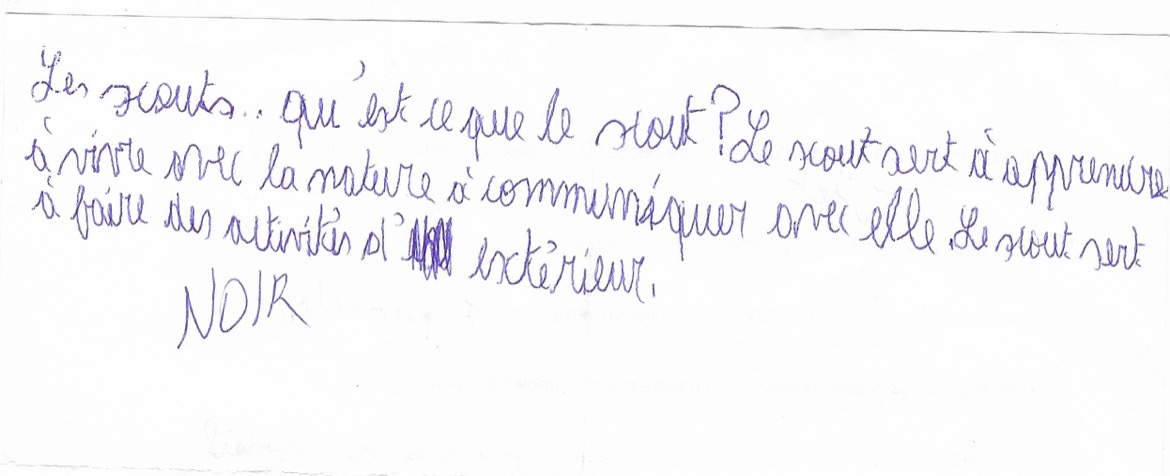 Les scouts.. qu'est ce que le scout? Le scout sert à apprendre
à vivre avec la nature à communiquer avec elle. Le scout sert
à faire des activités d' extérieur.
NOIR